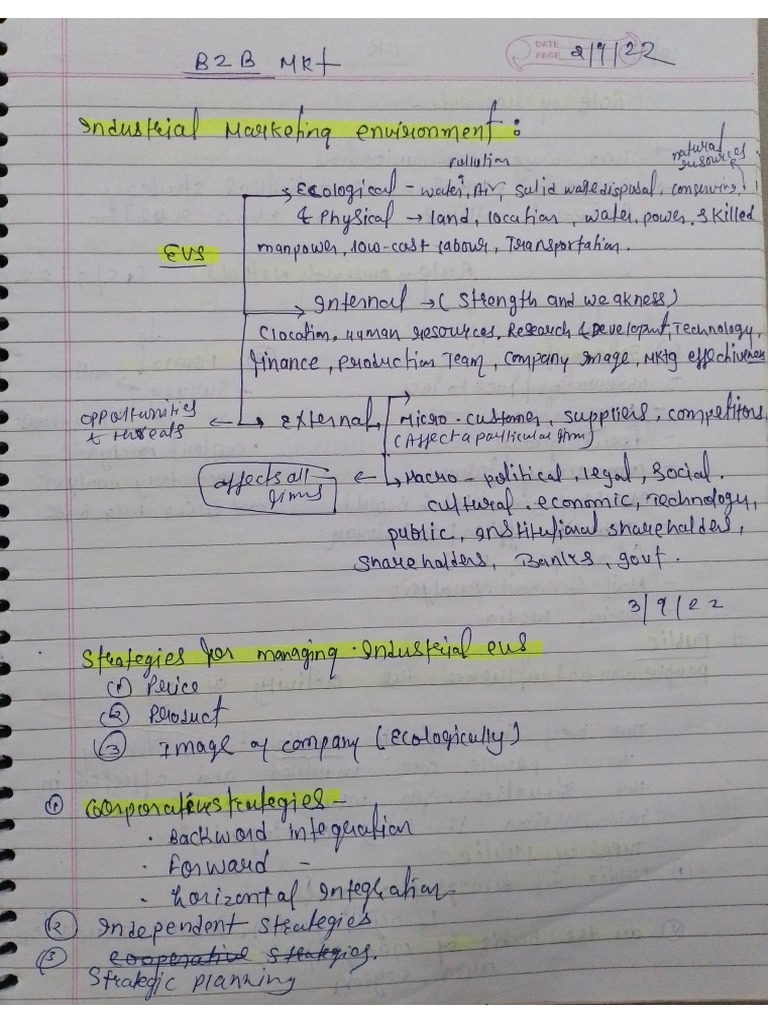 B2B MKt
DATE
PAGE 2/9/22
Industrial Marketing environment:
pollution
natural resources
Ecological - water, Air, solid waste disposal, conserving
& Physical → land, location, water, power, skilled
EVS
manpower, low-cost labour, Transportation.
Internal → (Strength and weakness)
(location, Human resources, Research & Development, Technology,
finance, production Team, company Image, Mktg effectiveness
opportunities & threats ← External
Micro - customer, suppliers, competitors
(Affect a particular firm)
affects all firms ← Macro - political, legal, social.
cultural. economic, technology,
public, institutional shareholders,
shareholders, Banks, govt.
3/9/22
Strategies for managing Industrial evs
(1) Price
(2) Product
(3) Image of company (Ecologically)
(1) Corporative strategies -
. Backword integration
. forward -
. horizontal Integration
(2) Independent strategies
(3) cooperative strategies.
Strategic planning